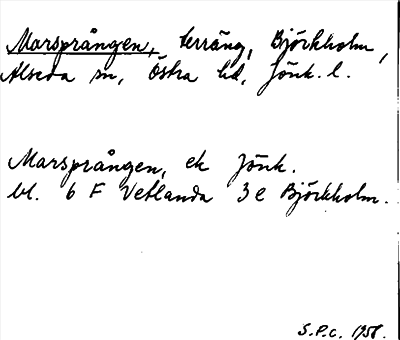 Marsprången, terräng, Björkholm,
Alseda sn, Östra hd, Jönk. l.
Marsprången, ek Jönk.
bl. 6 F Vetlanda 3 e Björkholm.
S.P.C. 1958.